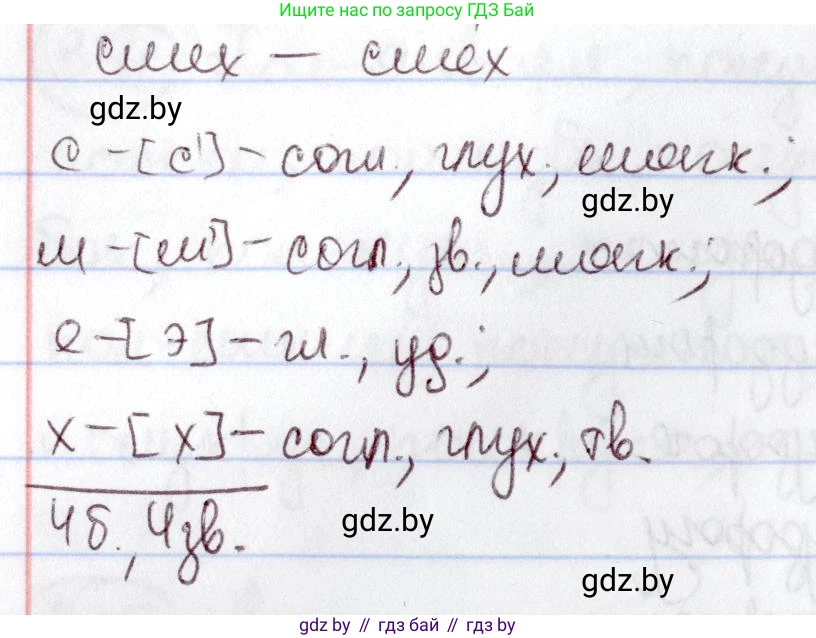 Ищите нас по запросу ГДЗ Бай
смех — смéх
gdz.by
с – [с'] – согл., глух., мягк.;
gdz.by
м – [м'] – согл., зв., мягк.;
е – [э] – гл., уд.;
х – [х] – согл., глух., тв.
4 б., 4 зв.
gdz.by
gdz.by
gdz.by // гдз бай // гдз by